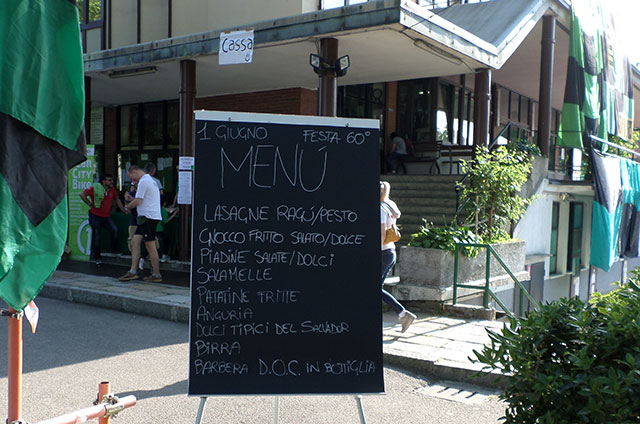 Cassa
1 GIUGNO FESTA 60°
MENÚ
LASAGNE RAGÚ/PESTO
GNOCCO FRITTO SALATO/DOLCE
PIADINE SALATE/DOLCI
SALAMELLE
PATATINE FRITTE
ANGURIA
DOLCI TIPICI DEL SALVADOR
BIRRA
BARBERA D.O.C. IN BOTTIGLIA
CITY